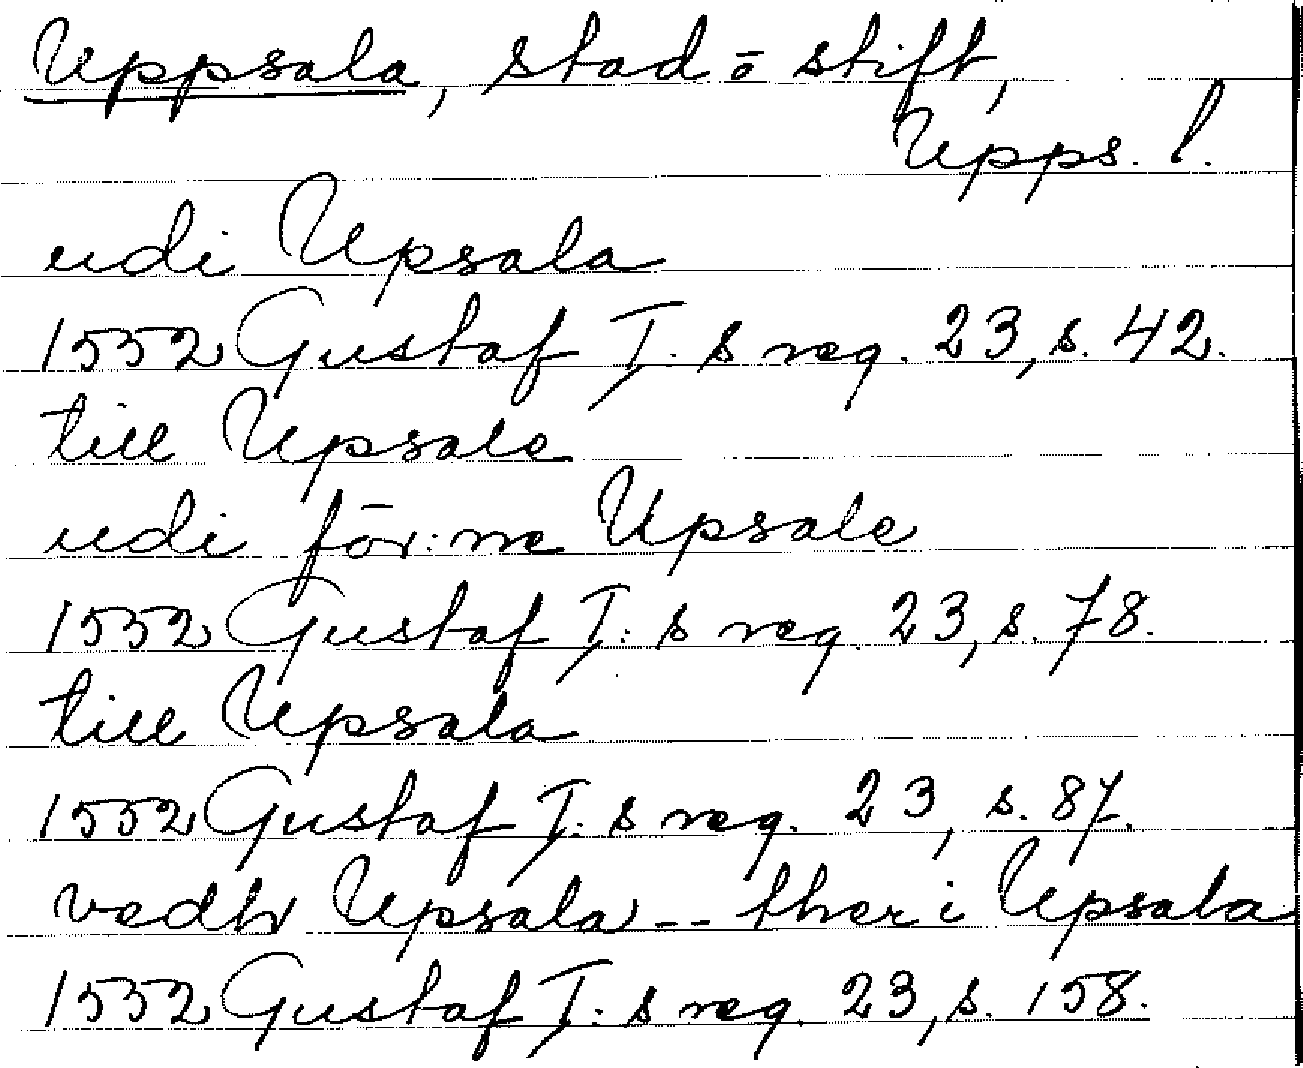 Uppsala, stad o stift,
Upps. l.
udi Upsala
1552 Gustaf I. s reg. 23, s. 42.
till Upsale
udi för:ne Upsale
1552 Gustaf I: s reg. 23, s. 78.
till Upsala
1552 Gustaf I: s reg. 23, s. 87.
vedh Upsala -- ther i Upsala
1552 Gustaf I: s reg. 23, s. 158.